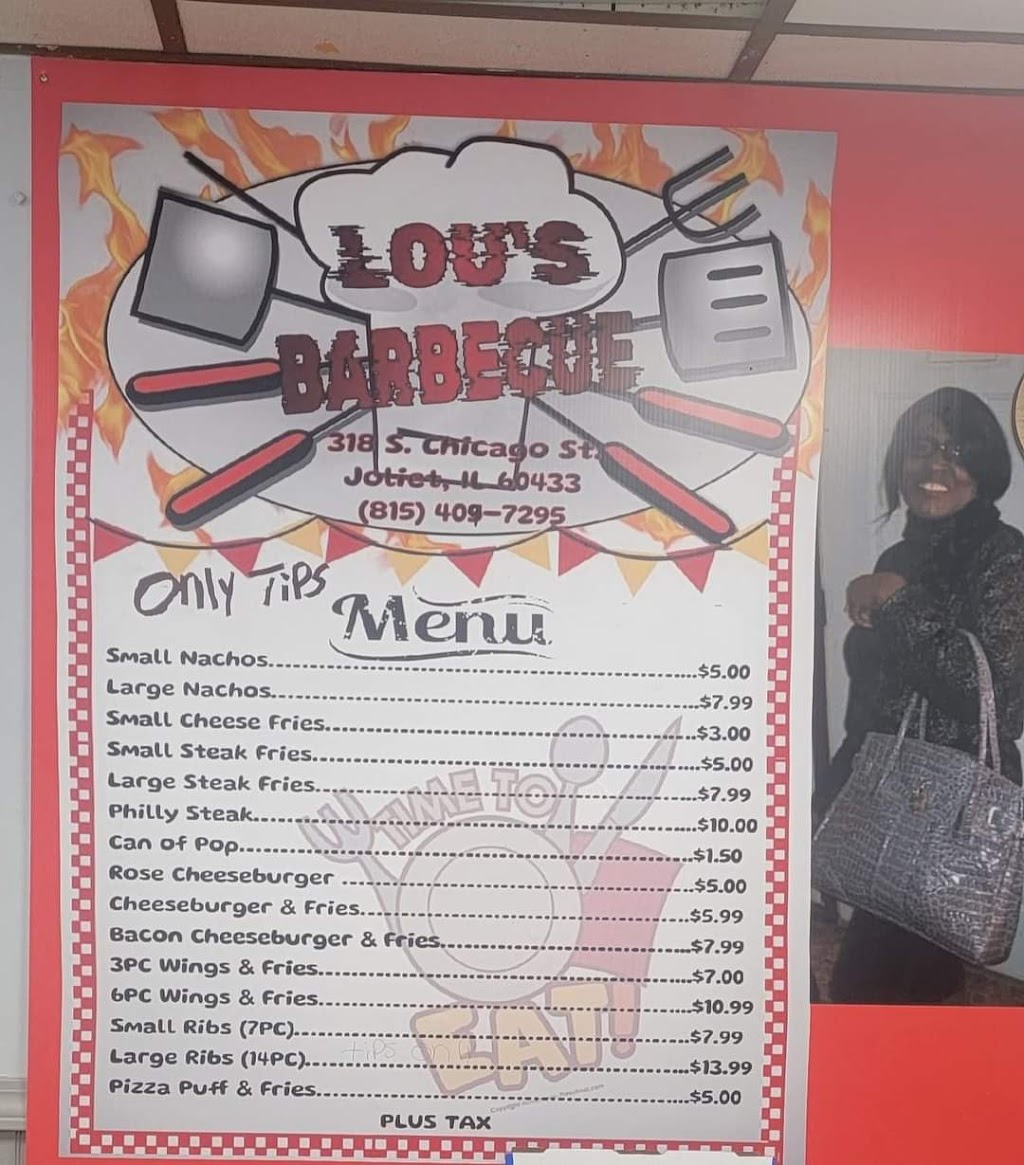 LOU'S
BARBECUE
318 S. Chicago St.
Joliet, IL 60433
(815) 409-7295
Only Tips
Menu
Small Nachos........$5.00
Large Nachos........$7.99
Small Cheese Fries........$3.00
Small Steak Fries........$5.00
Large Steak Fries........$7.99
Philly Steak........$10.00
Can of Pop........$1.50
Rose Cheeseburger ........$5.00
Cheeseburger & Fries........$5.99
Bacon Cheeseburger & Fries........$7.99
3PC Wings & Fries........$7.00
6PC Wings & Fries........$10.99
Small Ribs (7PC)........$7.99
Large Ribs (14PC)........$13.99
Pizza Puff & Fries........$5.00
PLUS TAX
TIME TO
EAT!
tips only